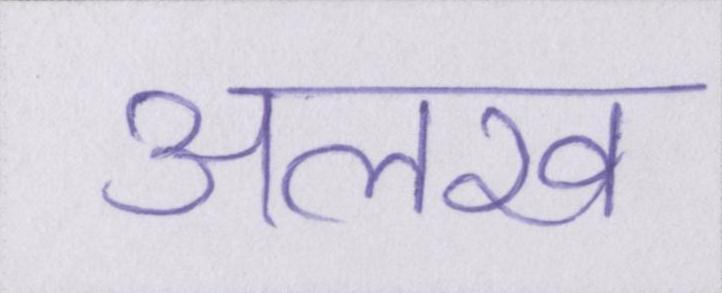 अलख